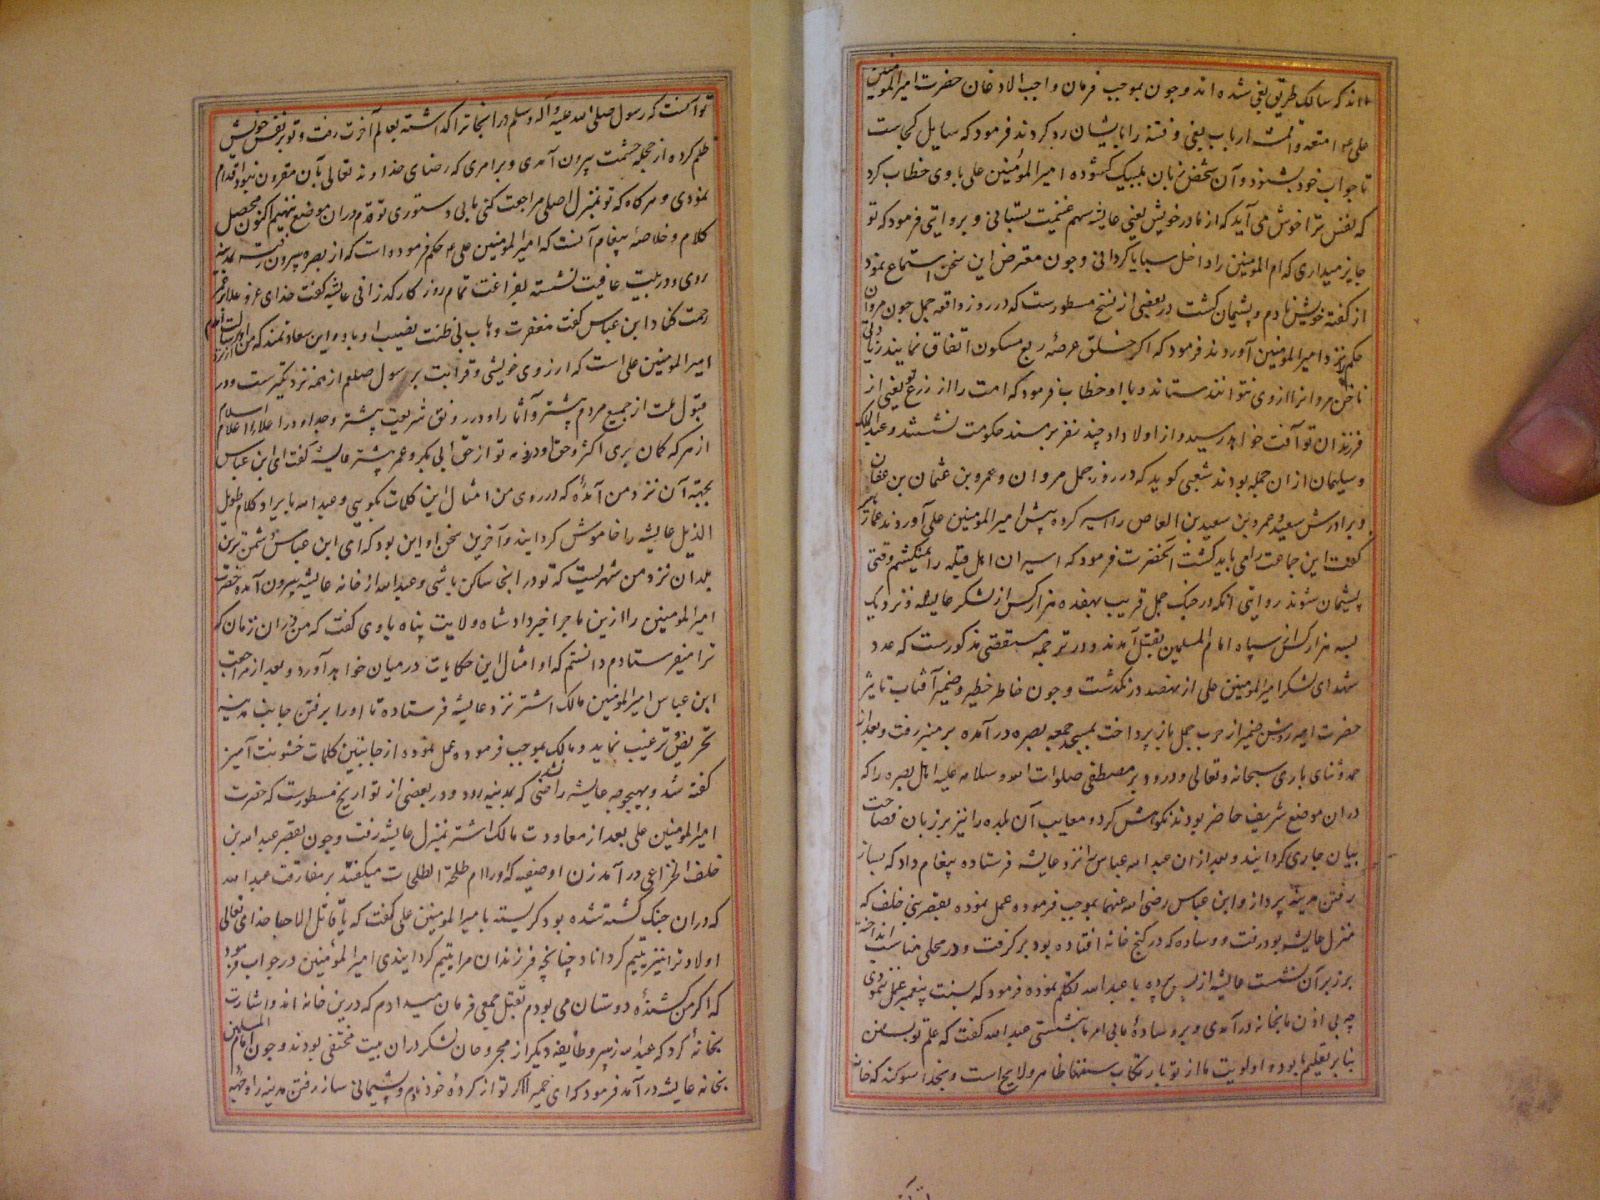 اند که سالک طریق بغی شده اند و چون بموجب فرمان واجب الاذعان حضرت امیرالمومنین
علی امتعه و اقمشه ارباب بغی و فتنه را بایشان رد کردند فرمود که سایل کجاست
تا جواب خود بشنود و آن شخص زبان بلبیک کشوده امیرالمؤمنین علی با وی خطاب کرد
که نفس ترا خوش می آید که از مادر خویش یعنی عایشه سهم غنیمت بستانی و بروایتی فرمود که تو
جایز میداری که ام المومنین را داخل سبایا کردانی و چون معترض این سخن استماع نمود
از کفته خویش نادم و پشیمان کشت در بعضی از نسخ مسطورست که در روز واقعه جمل چون مروان
حکم را نزد امیرالمومنین آوردند فرمود که اکر خلق عرصه ربع مسکون اتفاق نمایند
ناخن مروانرا از وی نتوانند ستاند و با او خطاب فرمود که امت را از زرع تو یعنی از
فرزندان تو آفت خواهد رسید و از اولاد او چند نفر بر مسند حکومت نشستند و عبدالملک
و سلیمان ازان جمله بودند شعبی کوید که در روز جمل مروان و عمرو بن عثمان بن عفان
و برادرش سعید و عمرو بن سعید بن العاص را اسیر کرده پیش امیرالمومنین علی آوردند عمار یاسر
کفت این جماعت را می باید کشت آنحضرت فرمود که اسیران اهل قبله را نمیکشم وقتی
پشیمان شوند روایتی آنکه در جنک جمل قریب بهفده هزار کس از لشکر عایشه و نزدیک
بسه هزار کس از سپاه امام المسلمین بقتل آمدند و در ترجمه مستقصی مذکورست که عدد
شهدای لشکر امیرالمومنین علی از هفصد در نکذشت و چون خاطر خطیر و ضمیر آفتاب تاثیر
حضرت امیر روشن ضمیر از حرب جمل باز پرداخت بمسجد جمعه بصره در آمده بر منبر رفت و بعد از
حمد و ثنای باری سبحانه و تعالی و درود بر مصطفی صلوات الله و سلامه علیه اهل بصره را که
دران موضع شریف حاضر بودند نکوهش کرد و معایب آن بلده را نیز بر زبان فصاحت
بیان جاری کردانید و بعد ازان عبدالله عباس را نزد عایشه فرستاده پیغام داد که بساز
رفتن مدینه پردازد و ابن عباس رضی الله عنهما بموجب فرموده عمل نموده بقصر بنی خلف که
منزل عایشه بود رفت و وساده که در کنج خانه افتاده بود بر کرفت و در محلی مناسب انداخته
بر زبر آن نشست عایشه از پس پرده با عبدالله تکلم نموده فرمود که بسنت پیغمبر عمل ننمودی
چه بی اذن ما بخانه در آمدی و بر وساده ما بی امر ما نشستی عبدالله کفت که علم تو بسنن
بنا بر تعلیم ما بوده اولویت ما از تو بارتکاب سنتها ظاهر و لایح است و بخدا سوکند که خانه
تو آنست که رسول صلی الله علیه و آله و سلم در آنجا ترا کذاشته بعالم آخرت رفت و تو بر نفس خویش
ظلم کرده از حجله حشمت بیرون آمدی و بر امری که رضای خداوند تعالی بآن مقرون نبود اقدام
نمودی و هرکاه که تو بمنزل اصلی مراجعت کنی ما بی دستوری تو قدم دران موضع ننهیم اکنون محصل
کلام و خلاصه پیغام آنست که امیرالمومنین علی حکم فرموده است که از بصره بیرون رفته بمدینه
روی و در بیت عافیت نشسته بفراغت تمام روزکار کذرانی عایشه کفت خدای عز و علا
رحمت کناد ابن عباس کفت مغفرت وهاب بی ظنت نصیب او باد و این سعادتمند که من
امیرالمومنین علی است که از روی خویشی و قرابت برسول صلعم از همه نزدیکترست و در
قبول ملت از جمیع مردم پیشتر و آثار او در رونق شریعت بیشتر و جد او در اعلاء اعلام اسلام
از هرکه کمان بری اکثر و حق او در ذمه تو از حق ابی بکر و عمر بیشتر عایشه کفت ای ابن عباس
بجهت آن نزد من آمده که در روی من امثال این کلمات بکویی و عبدالله بایراد کلام طویل
الذیل عایشه را خاموش کردانید و آخرین سخن او این بود که ای ابن عباس دشمن ترین
بلدان نزد من شهریست که تو در انجا ساکن باشی و عبدالله از خانه عایشه بیرون آمده حضرت
امیرالمومنین را ازین ماجرا خبر داد شاه ولایت پناه با وی کفت که من دران زمان که
ترا میفرستادم دانستم که او امثال این حکایات در میان خواهد آورد و بعد از مراجعت
ابن عباس امیرالمومنین مالک اشتر نزد عایشه فرستاده تا او را برفتن جانب مدینه
تحریض و ترغیب نماید و مالک بموجب فرموده عمل نموده از جانبین کلمات خشونت آمیز
کفته شد و بهیچوجه عایشه راضی نشد که بمدینه رود و در بعضی از تواریخ مسطورست که حضرت
امیرالمومنین علی بعد از معاودت مالک اشتر بمنزل عایشه رفت و چون بقصر عبدالله بن
خلف الخزاعی در آمد زن او صفیه که او را ام طلحة الطلحات میکفتند بر مفارقت عبدالله
که دران جنک کشته شده بود کریسته با امیرالمومنین علی کفت که یا قاتل الاحبا خدای تعالی
اولاد ترا نیز یتیم کرداناد چنانچه فرزندان مرا یتیم کردانیدی امیرالمؤمنین در جواب فرمود
که اکر من کشنده دوستان می بودم بقتل جمعی فرمان میدادم که درین خانه اند و اشارت
بخانه کرد که عبدالله زبیر و طایفه دیکر از مجروحان لشکر دران بیت مختفی بودند و چون امام المسلمین
بخانه عایشه در آمد فرمود که ای حمیرا اکر تو از کرده خود نادم و پشیمانی ساز رفتن مدینه را وجهه